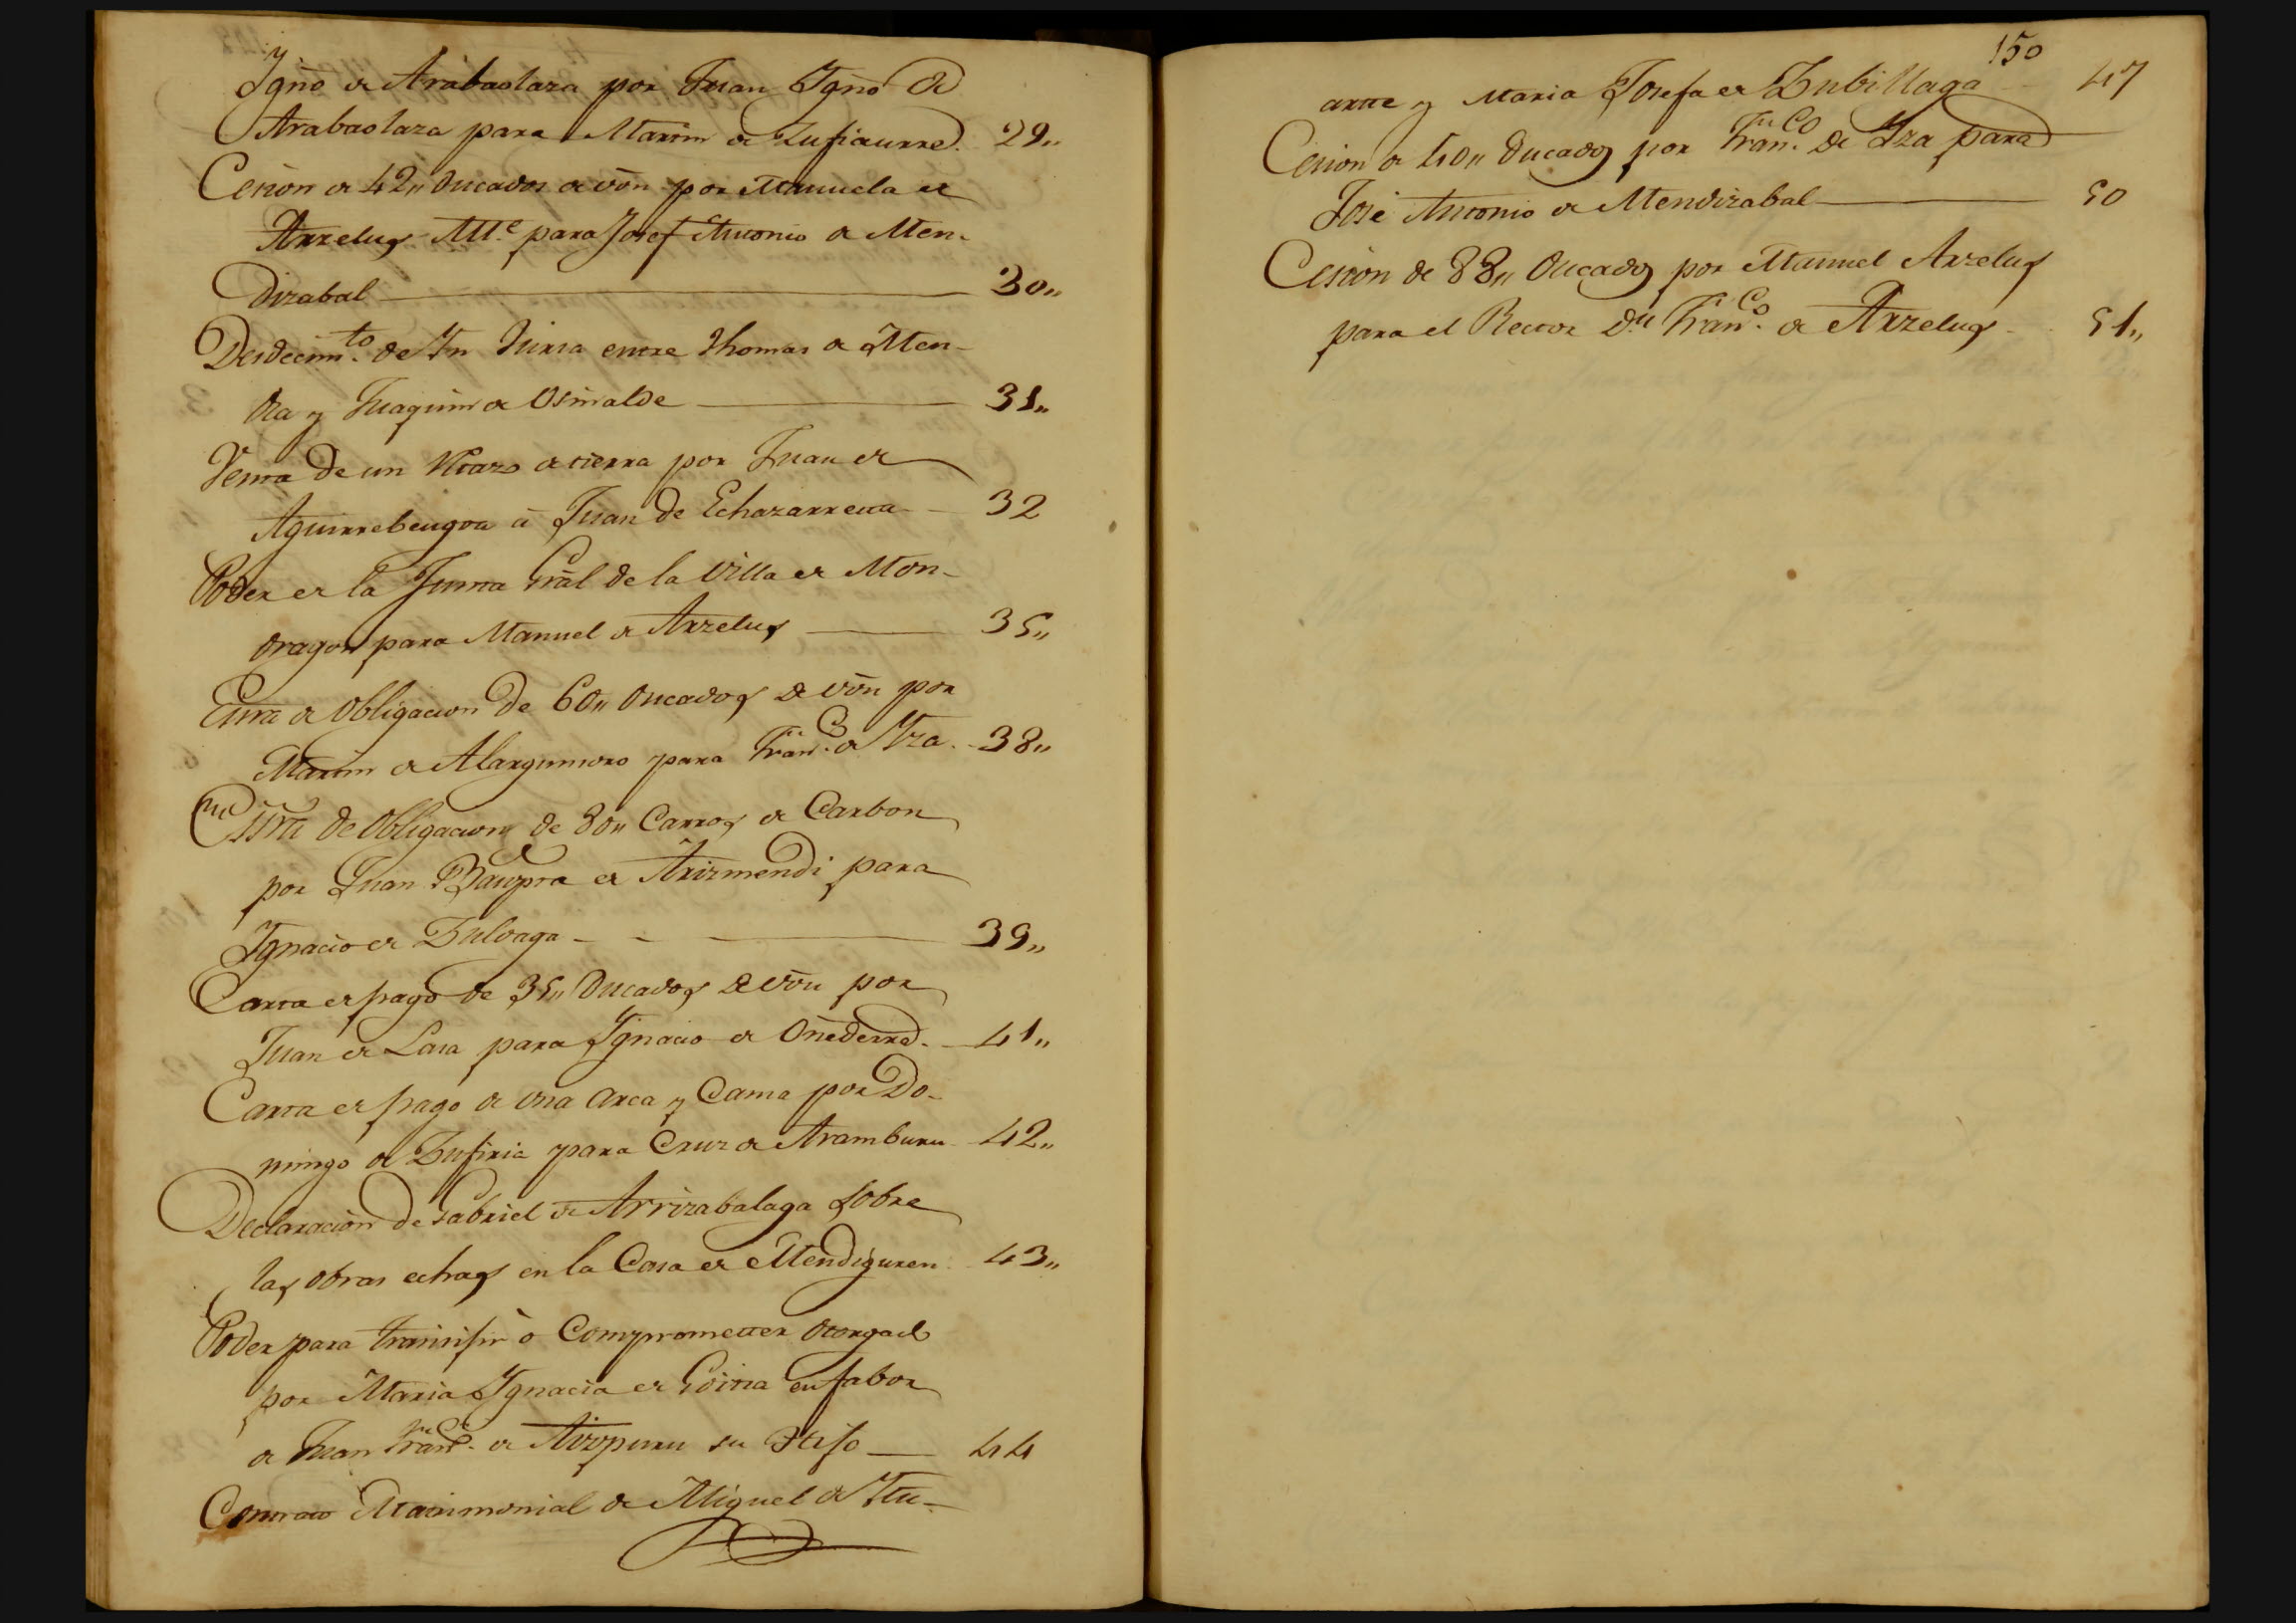 Ygnõ de Arabaolaza por Juan Ygnõ de
Arabaolaza para Martin de Zufiaurre. 29,,
Cesion de 42,, Ducados de võn por Manuela de
Arzelus para Josef Antonio de Men-
dizabal 30,,
Desdecimto. de Yn Juria entre Thomas de Men-
dia y Juaquin de Osinalde 31,,
Venta de un Pedazo de tierra por Juan de
Aguirrebengoa à Juan de Echazarreta 32
Poder de la Junta Grãl de la Villa de Mon-
dragon para Manuel de Arzelus 35,,
Esũra de Obligacion de 60,, Ducados de võn por
Martin de Alargunsoro para Franco. de Yza. 38,,
Esũra de Obligacion de 30,, Carros de Carbon
por Juan Baupta de Arizmendi para
Ygnacio de Zuloaga 39,,
Carta de pago de 35,, Ducados de võn por
Juan de Lasa para Ygnacio de Oñederra. 41,,
Carta de pago de una Arca y Cama por Do-
mingo de Zufiria para Cruz de Aramburu 42,,
Declaracion de Gabriel de Arrizabalaga sobre
las obras echas en la Casa de Mendiguren 43,,
Poder para transijir ò Comprometter Otorgado
por Maria Ygnacia de Goitia en fabor
de Juan Franco. de Aizpuru su Hijo 44
Contrato Matrimonial de Miguel de Ytu-
150
artte y Maria Josefa de Zubillaga 47
Cesion de 40,, Ducados por Franco. de Yza para
José Antonio de Mendizabal 50
Cesion de 88,, Ducados por Manuel Arzelus
para el Rector Dn Franco. de Arzelus 51,,